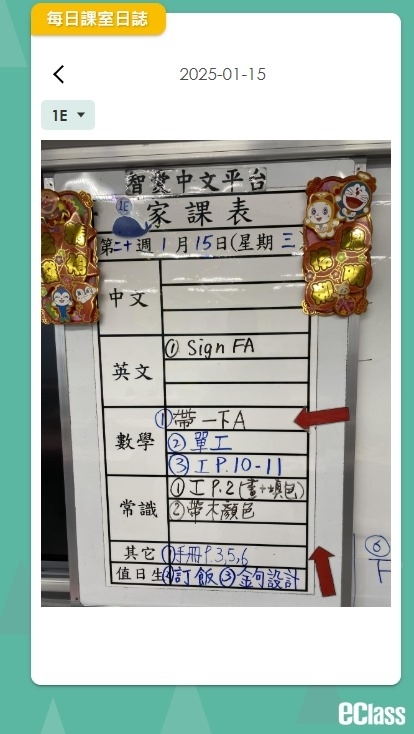 每日課室日誌
2025-01-15
1E
智愛中文平台
1E
家課表
第二十週1月15日(星期三)
中文
英文
① Sign FA
數學
①帶一下A
②單工
③工P.10-11
常識
①工P.2(畫+填色)
②帶木顏色
其它
①手冊P.3,5,6
值日生
②訂飯③金句設計
⑥
下
eClass